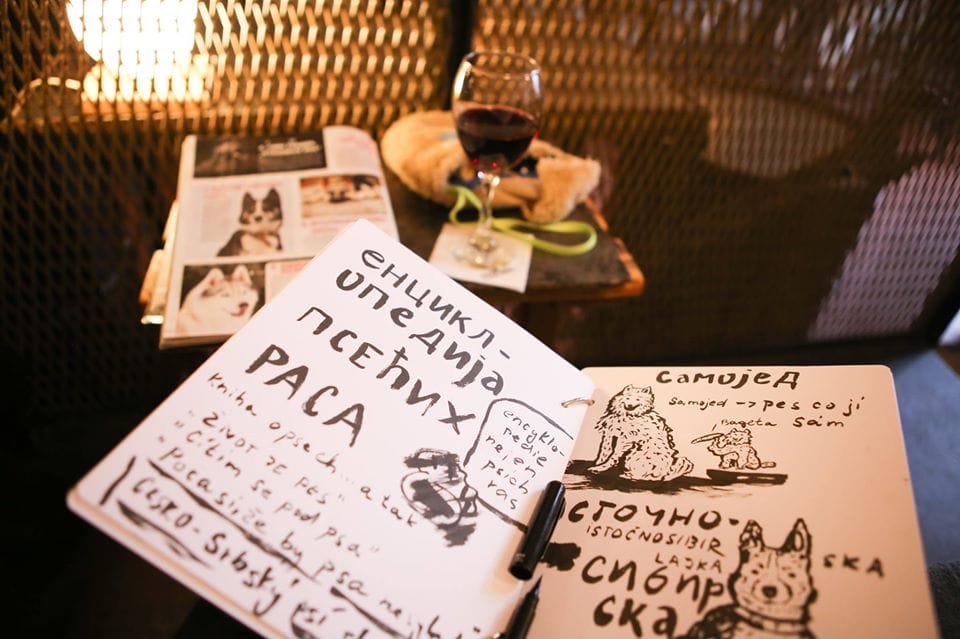 енцикл-
опедија
псећих
РАСА
Kniha o psech... a tak
"Živoт je pes"
"Cítím se pod psa"
"Počasí, že by psa
Česko-Sibský
encyklo-
pedie
nejen
psích
ras
самојед
samojed -> pes co jí
bageta sám
источно-
ISTOČNOSIBIR
LAJKA
СИБИР
СКА
SKA